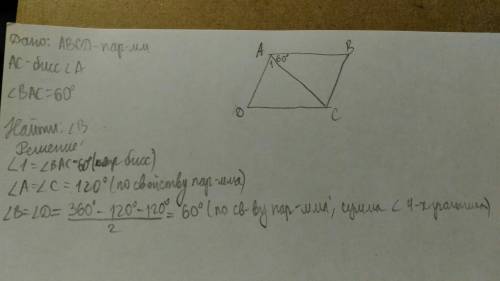 Дано: ABCD-пар-мм
AC-бисс ∠A
∠BAC=60°
Найти: ∠B
Решение:
∠1=∠BAC=60° (опр бисс)
∠A=∠C=120° (по свойству пар-мма)
∠B=∠D= 360°-120°-120° / 2 = 60° (по св-ву пар-мма; сумма ∠ 4-х угольника)
A
B
1
60°
D
C